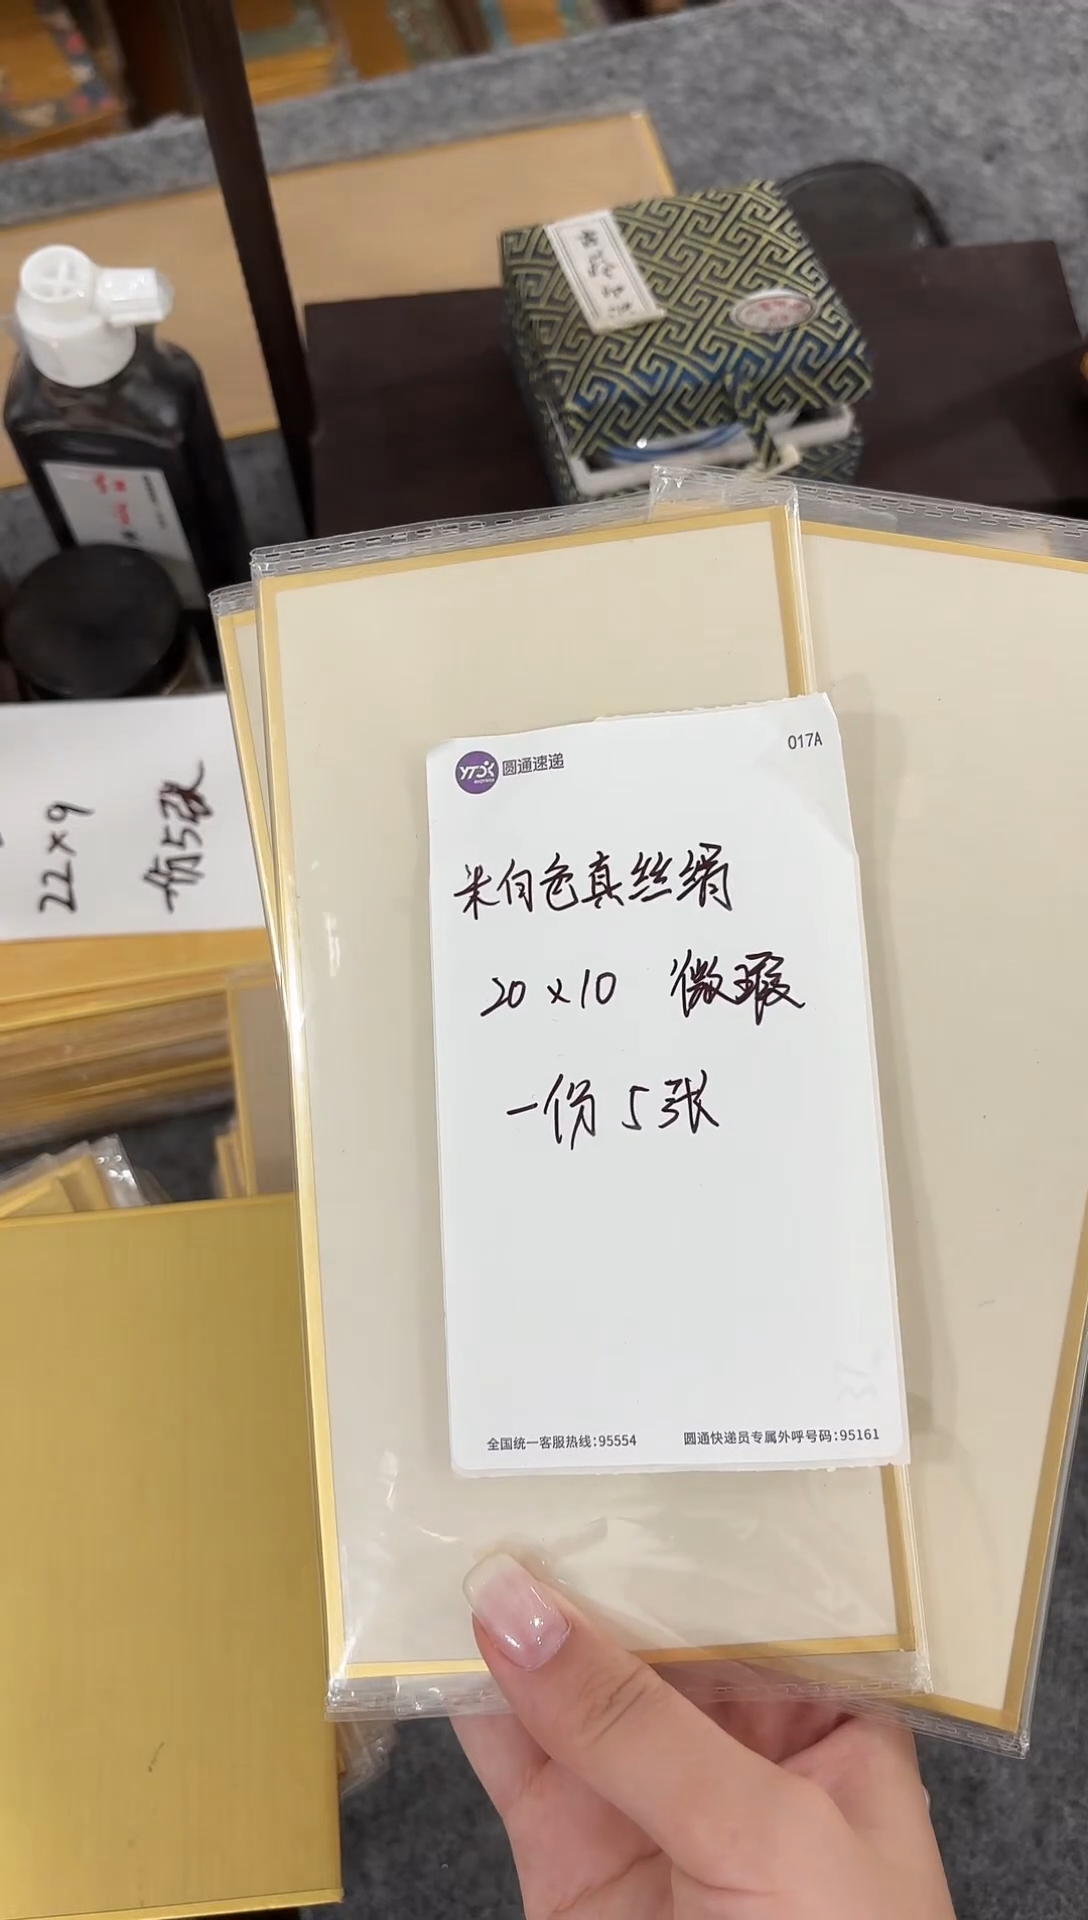 圆通速递
017A
米白色真丝绢
20×10 微瑕
一份 5张
全国统一客服热线:95554
圆通快递员专属外呼号码:95161
22×9
一份5张